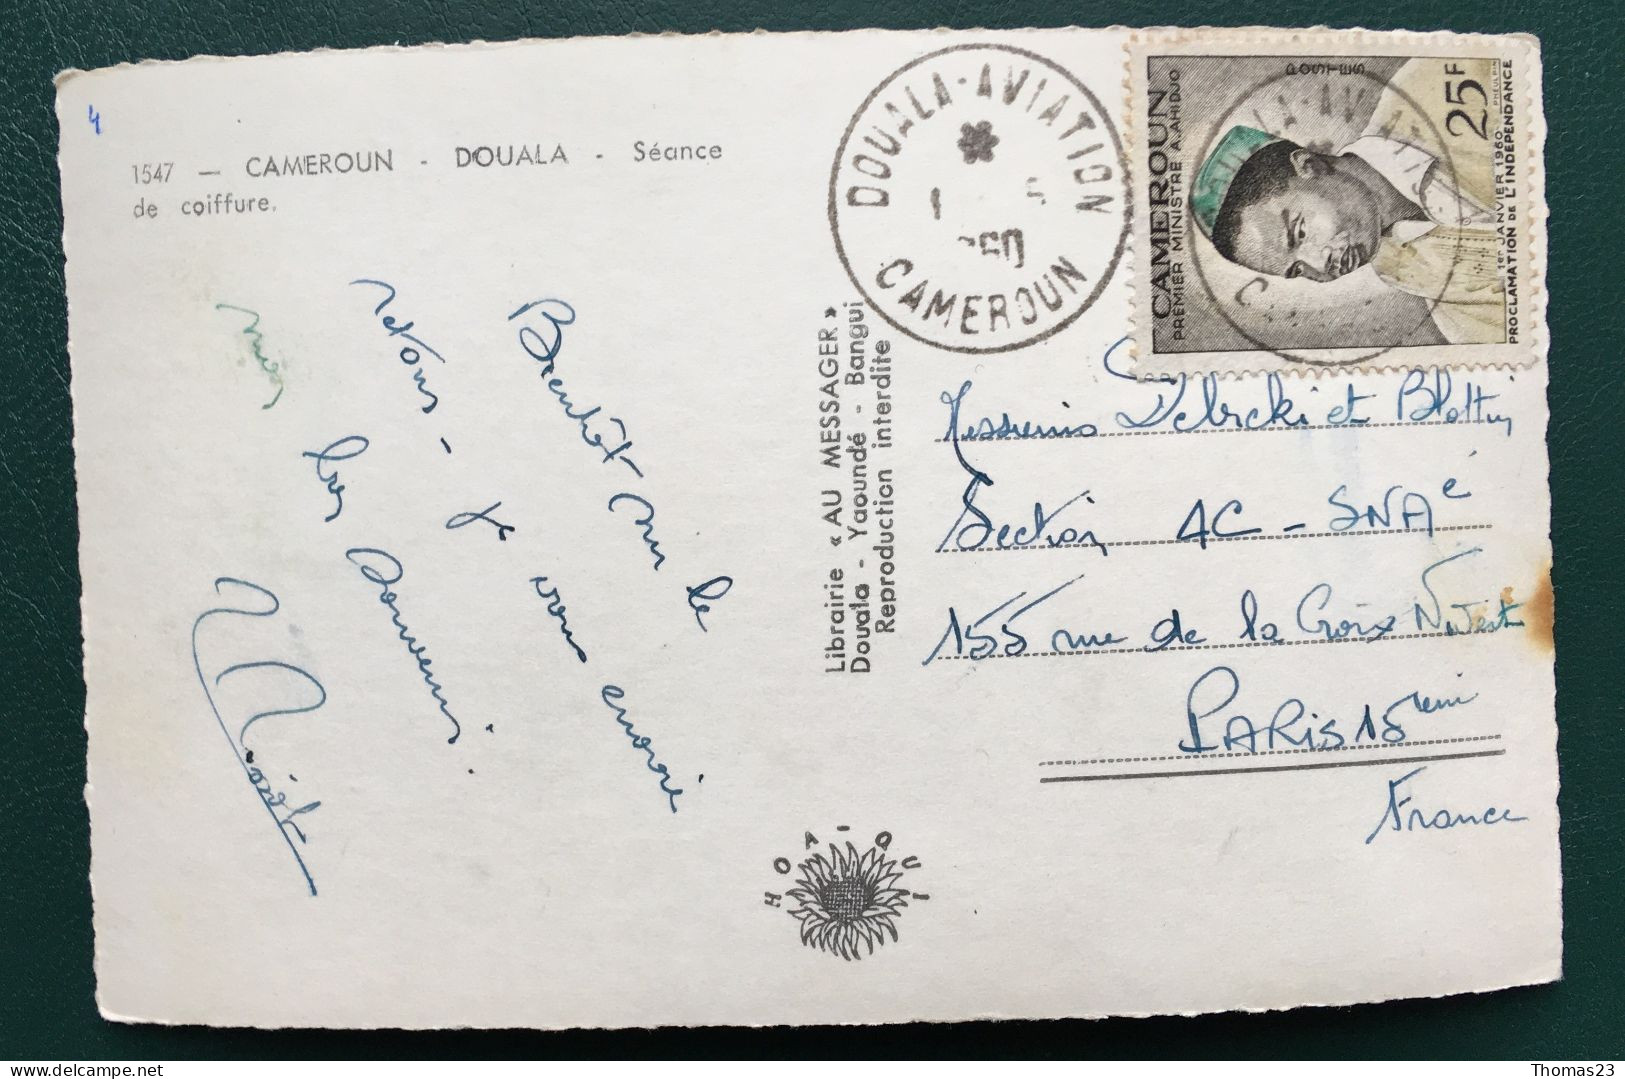 4
1547 — CAMEROUN - DOUALA - Séance
de coiffure.
Bientôt sur le
retour - Je vous envoie
mes bons souvenirs.
Librairie « AU MESSAGER »
Douala - Yaoundé - Bangui
Reproduction interdite
HOA-QUI
DOUALA-AVIATION
CAMEROUN
CAMEROUN
PREMIER MINISTRE A. AHIDJO
POSTES
25F
1er JANVIER 1960
PHEULPIN
PROCLAMATION DE L'INDEPENDANCE
Messieurs et
Section AC - SNAé
155 rue de la Croix Nivert
PARIS 15ème
France
Thomas23